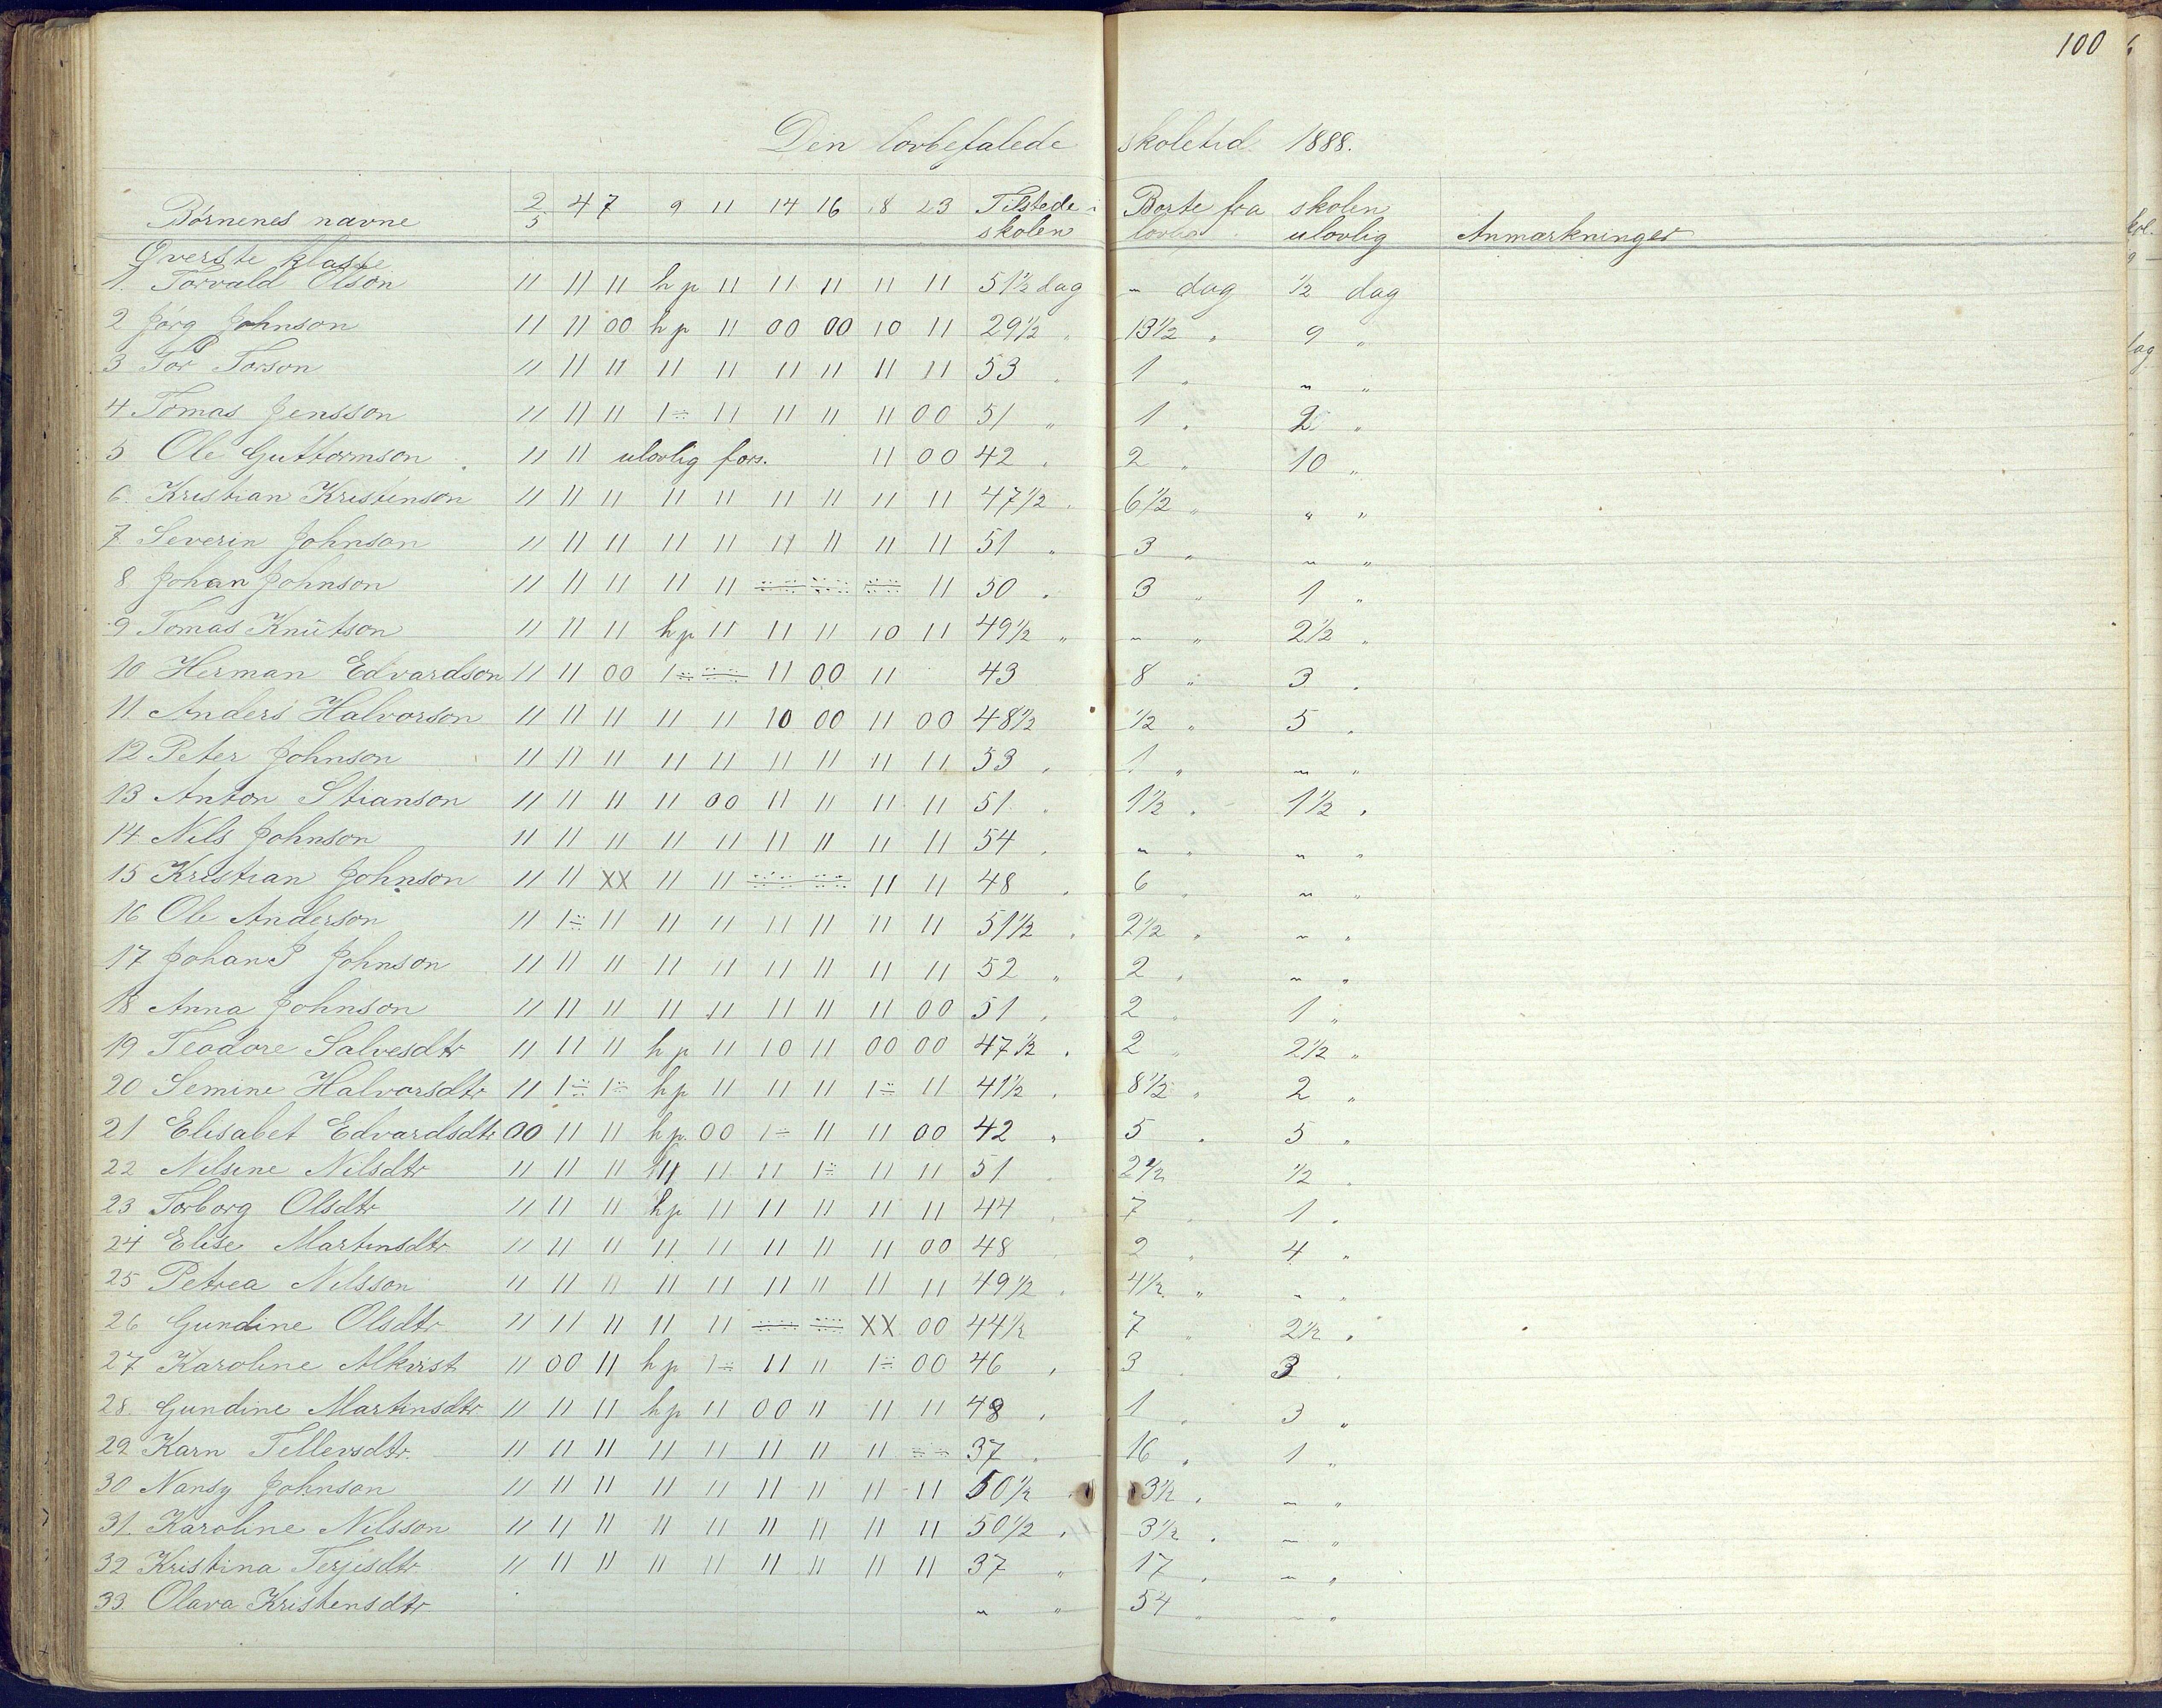 100
Den lovbefalede skoletid 1888.
Børnenes navne 2/5 4 7 9 11 14 16 18 23 Tilstede i skolen Borte fra skolen lovlig ulovlig Anmærkninger
Øverste klasse
1. Torvald Olson 11 11 11 h p 11 11 11 11 11 51 1/2 dag - dag 1/2 dag
2 Jørg Johnson 11 11 00 h p 11 00 00 10 11 29 1/2 " 13 1/2 " 9 "
3 Tor Torson 11 11 11 11 11 11 11 11 11 53 " 1 " - "
4 Tomas Jensson 11 11 11 1÷ 11 11 11 11 00 51 " 1 " 2 "
5 Ole Guttormson 11 11 ulovlig fors. 11 00 42 " 2 " 10 "
6. Kristian Kristenson 11 11 11 11 11 11 11 11 11 47 1/2 " 6 1/2 " " "
7. Severin Johnson 11 11 11 11 11 11 11 11 11 51 " 3 " - "
8 Johan Johnson 11 11 11 11 11 ÷÷ ÷÷ ÷÷ 11 50 " 3 " 1 "
9 Tomas Knutson 11 11 11 h p 11 11 11 10 11 49 1/2 " - " 2 1/2 "
10 Herman Edvardson 11 11 00 1÷ ÷÷ 11 00 11 43 8 " 3 "
11. Anders Halvorson 11 11 11 11 11 10 00 11 00 48 1/2 1/2 " 5 "
12 Peter Johnson 11 11 11 11 11 11 11 11 11 53 " 1 " - "
13 Anton Stianson 11 11 11 11 00 11 11 11 11 51 " 1 1/2 " 1 1/2 "
14 Nils Johnson 11 11 11 11 11 11 11 11 11 54 " - " - "
15 Kristian Johnson 11 11 XX 11 11 ÷÷ ÷÷ 11 11 48 " 6 " - "
16 Ole Anderson 11 1÷ 11 11 11 11 11 11 11 51 1/2 " 2 1/2 " - "
17 Johan P Johnson 11 11 11 11 11 11 11 11 11 52 " 2 " - "
18 Anna Johnson 11 11 11 11 11 11 11 11 00 51 " 2 " 1 "
19 Teodore Salvesdtr 11 11 11 h p 11 10 11 00 00 47 1/2 " 2 " 2 1/2 "
20 Semine Halvorsdtr 11 1÷ 1÷ h p 11 11 11 1÷ 11 41 1/2 " 8 1/2 " 2 "
21 Elisabet Edvardsdtr 00 11 11 h p. 00 1÷ 11 11 00 42 " 5 " 5 "
22 Nilsine Nilsdtr 11 11 11 11 11 11 1÷ 11 11 51 " 2 1/2 1/2 "
23 Torborg Olsdtr 11 11 11 h p 11 11 11 11 11 44 " 7 " 1 "
24 Elise Martinsdtr 11 11 11 11 11 11 11 11 00 48 " 2 " 4 "
25 Petrea Nilsson 11 11 11 11 11 11 11 11 11 49 1/2 " 4 1/2 " - "
26 Gundine Olsdtr 11 11 11 11 11 ÷÷ ÷÷ XX 00 44 1/2 7 " 2 1/2 "
27 Karoline Alkvist 11 00 11 h p 1÷ 11 11 1÷ 00 46 " 3 " 3 "
28. Gundine Martinsdtr. 11 11 11 h p 11 00 11 11 11 48 " 1 " 3 "
29 Karn Tellevsdtr. 11 11 11 11 11 11 11 11 ÷÷ 37 " 16 " 1 "
30 Nansy Johnson 11 11 11 11 11 11 11 11 11 50 1/2 " 3 1/2 " - "
31. Karoline Nilsson 11 11 11 11 11 11 11 11 11 50 1/2 " 3 1/2 " - "
32 Kristina Terjesdtr 11 11 11 11 11 11 11 11 11 37 " 17 " - "
33. Olava Kristensdtr - " 54 " - "